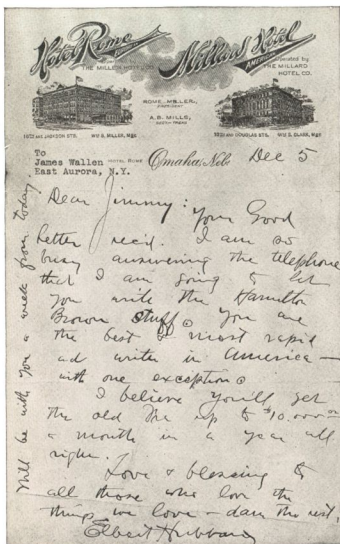 Hotel Rome
Millard Hotel
AMERICAN
Operated by
THE MILLER HOTEL CO.
THE MILLARD
HOTEL CO.
ROME MILLER,
PRESIDENT
A.B. MILLS,
16TH and JACKSON STS. WM B. MILLER, MGR.
13TH and DOUGLAS STS. WM D. CLARK, MGR.
To
James Wallen HOTEL ROME Omaha, Neb. Dec 5
East Aurora, N.Y.
Dear Jimmy: Your Good
letter rec'd. I am so
busy answering the telephone
that I am going to let
you write the Hamilton
Brown stuff. You are
the best & most rapid
ad writer in America —
with one exception.
I believe you'll get
the old up to $10,000
a month in a year all
right.
Love & blessing to
all those who love the
things we love — darn the rest.
Elbert Hubbard
Will be with you a week from today